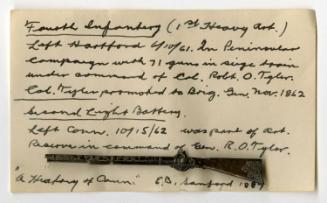 Fourth Infantry (1st Heavy Art.)
Left Hartford 6/10/61. In Peninsular
Campaign with 71 guns in siege train
under command of Col. Robt. O. Tyler.
Col. Tyler promoted to Brig. Gen. Nov. 1862
Second Light Battery.
Left Conn. 10/15/62 was part of Art.
Reserve in command of Gen. R.O. Tyler.
"A History of Conn." E.B. Sanford 1887